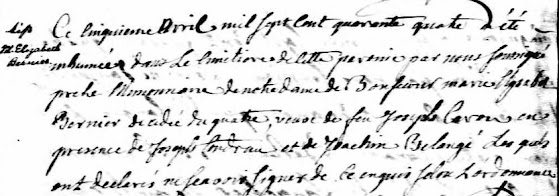 M. Elizabeth
Bernier
Ce cinquieme Avril mil sept cent quarante quatre a été
inhumée dans le cimitiere de cette paroisse par nous soussigné
prêtre missionnaire de notre dame de Bonsecour marie Elizabeth
Bernier decedée du quatre, veuve de feu Joseph Caron en
presence de Joseph et de Joachim Belangé Les quels
ont declarés ne scavoir signer de ce enquis selon L'ordonnance